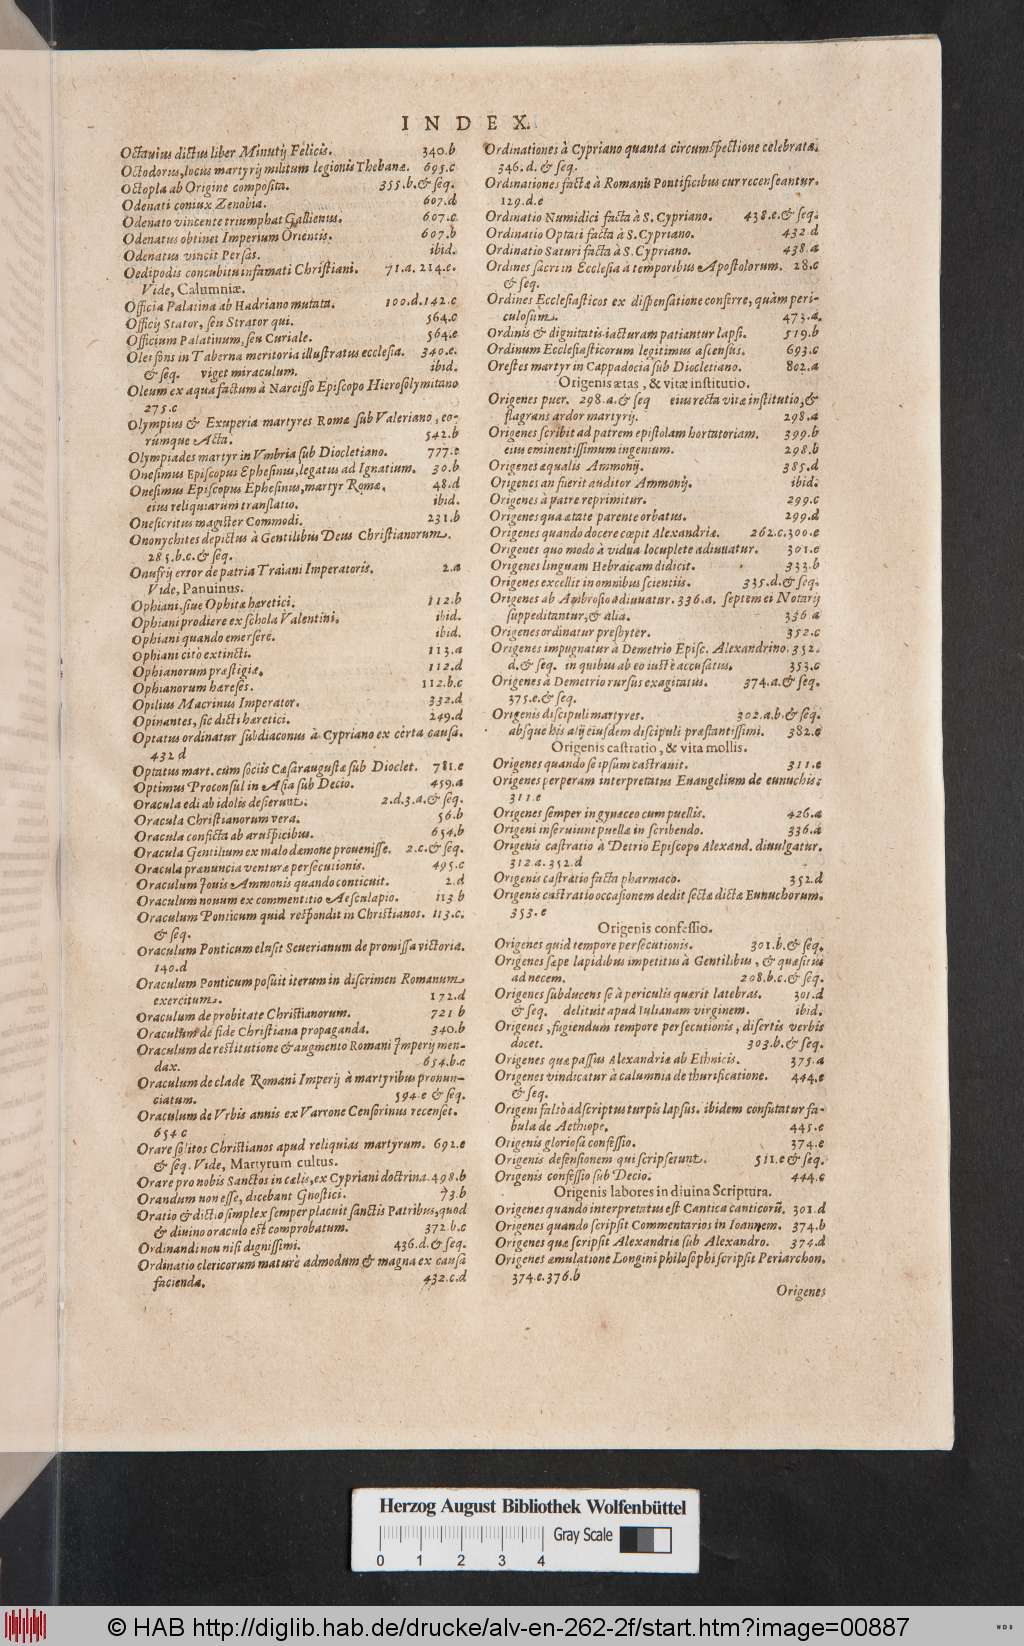 INDEX.
Octavius dictus liber Minutij Felicis. 340.b
Octodorus, locus martyrij militum legionis Thebanæ. 695.c
Octopla ab Origine composita. 355.b.& seq.
Odenati coniux Zenobia. 607.d
Odenato vincente triumphat Gallienus. 607.c
Odenatus obtinet Imperium Orientis. 607.b
Odenatus vincit Persas. ibid.
Oedipodis concubitu infamati Christiani. 71.a. 214.e.
Vide, Calumniæ.
Officia Palatina ab Hadriano mutata. 100.d.142.c
Officij Stator, seu Strator qui. 564.c
Officium Palatinum, seu Curiale. 564.e
Olei fons in Taberna meritoria illustratus ecclesia. 340.e.
& seq. viget miraculum. ibid.
Oleum ex aqua factum à Narcisso Episcopo Hierosolymitano
275.c
Olympius & Exuperia martyres Romæ sub Valeriano, eo-
rumque Acta. 542.b
Olympiades martyr in Vmbria sub Diocletiano. 777.e
Onesimus Episcopus Ephesinus, legatus ad Ignatium. 30.b
Onesimus Episcopus Ephesinus, martyr Romæ. 48.d
eius reliquiarum translatio. ibid.
Onesicritus magister Commodi. 231.b
Ononychites depictus à Gentilibus Deus Christianorum.
285.b.c.& seq.
Onufrij error de patria Traiani Imperatoris. 2.a
Vide, Panuinus.
Ophiani, siue Ophitæ hæretici. 112.b
Ophiani prodiere ex schola Valentini. ibid.
Ophiani quando emersere. ibid.
Ophiani citò extincti. 113.a
Ophianorum præstigiæ. 112.d
Ophianorum hæreses. 112.b.c
Opilius Macrinus Imperator. 332.d
Opinantes, sic dicti hæretici. 249.d
Optatus ordinatur subdiaconus à Cypriano ex certa causa.
432 d
Optatus mart. cum sociis Cæsaraugustæ sub Dioclet. 781.e
Optimus Proconsul in Asia sub Decio. 459.a
Oracula edi ab idolis desierunt. 2.d.3.a.& seq.
Oracula Christianorum vera. 56.b
Oracula conficta ab aruspicibus. 654.b
Oracula Gentilium ex malo dæmone prouenisse. 2.c.& seq.
Oracula prænuncia venturæ persecutionis. 495.c
Oraculum Iouis Ammonis quando conticuit. 2.d
Oraculum nouum ex commentitio Aesculapio. 113 b
Oraculum Ponticum quid respondit in Christianos. 113.c.
& seq.
Oraculum Ponticum elusit Seuerianum de promissa victoria.
140.d
Oraculum Ponticum posuit iterum in discrimen Romanum
exercitum. 172.d
Oraculum de probitate Christianorum. 721 b
Oraculum de fide Christiana propaganda. 340.b
Oraculum de restitutione & augmento Romani Imperij men-
dax. 654.b.c
Oraculum de clade Romani Imperij à martyribus pronun-
ciatum. 594.e & seq.
Oraculum de Vrbis annis ex Varrone Censorinus recenset.
654 c
Orare solitos Christianos apud reliquias martyrum. 692.e
& seq. Vide, Martyrum cultus.
Orare pro nobis Sanctos in cælis, ex Cypriani doctrina. 498.b
Orandum non esse, dicebant Gnostici. 73.b
Oratio & dictio simplex semper placuit sanctis Patribus, quod
& diuino oraculo est comprobatum. 372.b.c
Ordinandi non nisi dignissimi. 436.d.& seq.
Ordinatio clericorum maturè admodum & magna ex causa
facienda. 432.c.d
Ordinationes à Cypriano quanta circumspectione celebratæ.
346.d.& seq.
Ordinationes factæ à Romanis Pontificibus cur recenseantur.
129.d.e
Ordinatio Numidici facta à S. Cypriano. 438.e.& seq.
Ordinatio Optati facta à S. Cypriano. 432 d
Ordinatio Saturi facta à S. Cypriano. 438.a
Ordines sacri in Ecclesia à temporibus Apostolorum. 28.c
& seq.
Ordines Ecclesiasticos ex dispensatione conferre, quàm peri-
culosum. 473.a.
Ordinis & dignitatis iacturam patiantur lapsi. 519.b
Ordinum Ecclesiasticorum legitimus ascensus. 693.c
Orestes martyr in Cappadocia sub Diocletiano. 802.a
Origenis ætas, & vitæ institutio.
Origenes puer. 298.a.& seq eius recta vitæ institutio, &
flagrans ardor martyrij. 298.a
Origenes scribit ad patrem epistolam hortatoriam. 399.b
eius eminentissimum ingenium. 298.b
Origenes æqualis Ammonij. 385.d
Origenes an fuerit auditor Ammonij. ibid.
Origenes à patre reprimitur. 299.c
Origenes qua ætate parente orbatus. 299.d
Origenes quando docere cœpit Alexandriæ. 262.c.300.e
Origenes quo modo à vidua locuplete adiuuatur. 301.e
Origenes linguam Hebraicam didicit. 333.b
Origenes excellit in omnibus scientiis. 335.d.& seq.
Origenes ab Ambrosio adiuuatur. 336.a. septem ei Notarij
suppeditantur, & alia. 336 a
Origenes ordinatur presbyter. 352.c
Origenes impugnatur à Demetrio Episc. Alexandrino. 352.
d.& seq. in quibus ab eo iustè accusatus. 353.c
Origenes à Demetrio rursus exagitatus. 374.a.& seq.
375.e.& seq.
Origenis discipuli martyres. 302.a.b.& seq.
absque his alij eiusdem discipuli præstantissimi. 382.e
Origenis castratio, & vita mollis.
Origenes quando se ipsum castrauit. 311.e
Origenes perperam interpretatus Euangelium de eunuchis:
311.e
Origenes semper in gynæceo cum puellis. 426.a
Origeni inseruiunt puellæ in scribendo. 336.a
Origenis castratio à Detrio Episcopo Alexand. diuulgatur.
312.a.352.d
Origenis castratio facta pharmaco. 352.d
Origenis castratio occasionem dedit sectæ dictæ Eunuchorum.
353.e
Origenis confessio.
Origenes quid tempore persecutionis. 301.b.& seq.
Origenes sæpe lapidibus impetitus à Gentilibus, & quæsitus
ad necem. 208.b.c.& seq.
Origenes subducens se à periculis quærit latebras. 301.d
& seq. delituit apud Iulianam virginem. ibid.
Origenes, fugiendum tempore persecutionis, disertis verbis
docet. 303.b.& seq.
Origenes quæ passus Alexandriæ ab Ethnicis. 375.a
Origenes vindicatur à calumnia de thurificatione. 444.e
& seq.
Origeni falsò adscriptus turpis lapsus. ibidem confutatur fa-
bula de Aethiope. 445.e
Origenis gloriosa confessio. 374.e
Origenis defensionem qui scripserunt. 511.e & seq.
Origenis confessio sub Decio. 444.c
Origenis labores in diuina Scriptura.
Origenes quando interpretatus est Cantica canticorũ. 301.d
Origenes quando scripsit Commentarios in Ioannem. 374.b
Origenes quæ scripsit Alexandriæ sub Alexandro. 374.d
Origenes æmulatione Longini philosophi scripsit Periarchon.
374.e.376.b
Origenes
Herzog August Bibliothek Wolfenbüttel
Gray Scale
0 1 2 3 4
© HAB http://diglib.hab.de/drucke/alv-en-262-2f/start.htm?image=00887